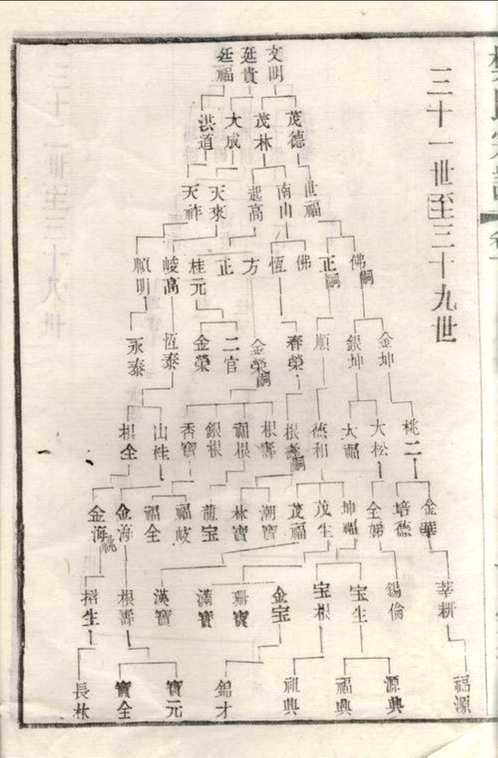 三十一世至三十九世
文明 廷貴 廷福
茂德 茂林 大成 洪道
世福 南山 起高 天來 天祚
佛嗣 正嗣 佛 恆 方 正 桂元 峻高 順明
金坤 銀坤 順 春榮 金榮嗣 二官 金榮 恆泰 永泰
桃二 大松 大福 德和 根壽嗣 根壽 福根 銀根 香寶 山桂 根全
金華 培德 全娣 坤福 茂生 茂福 潮寶 林寶 龍宝 福岐 福全 金海 金海祧
莘耕 錫倫 宝生 宝根 金宝 珊寶 漢寶 根壽 招生
福源 源興 福興 祖興 錦才 寶元 寶全 長林